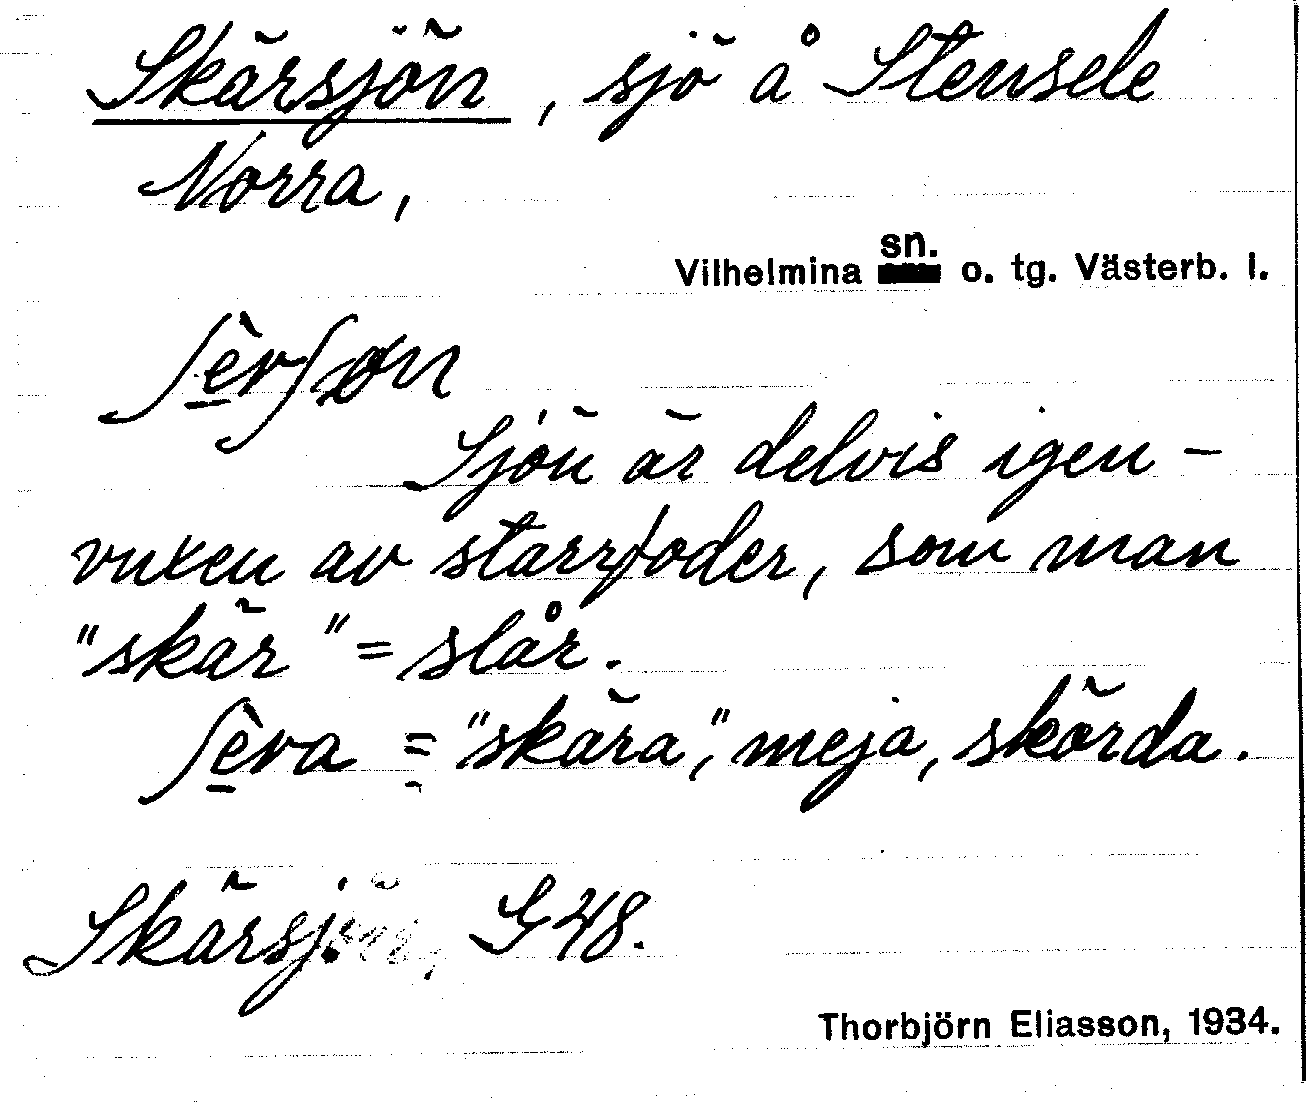 Skärsjön, sjö å Stensele
Norra,
Vilhelmina sn. o. tg. Västerb. l.
ʃèrʃøn
Sjön är delvis igen-
vuxen av starrfoder, som man
"skär" = slår.
ʃèra = "skära", meja, skörda.
Skärsj. G48.
Thorbjörn Eliasson, 1934.